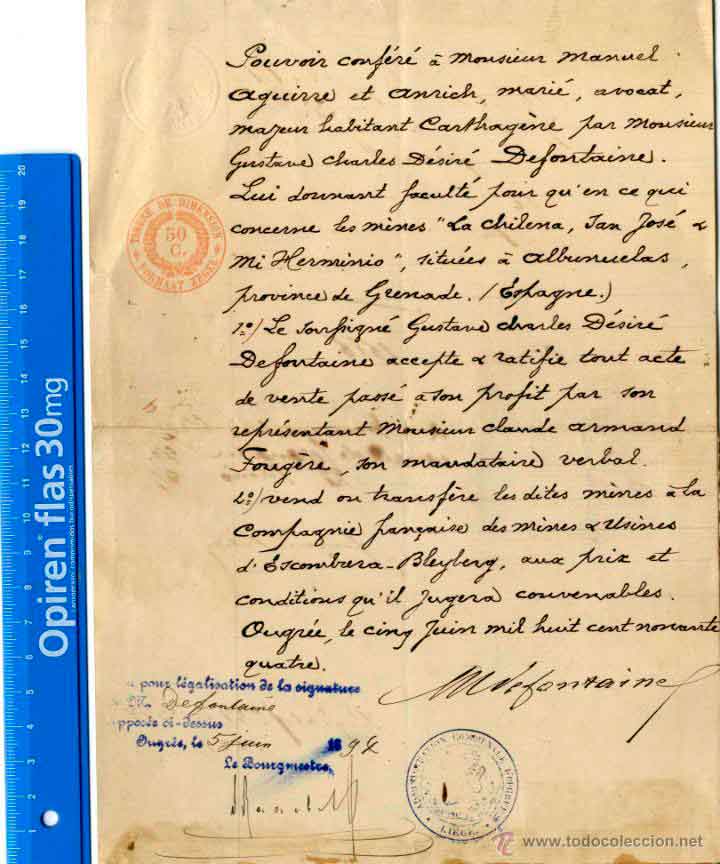 Pouvoir conféré à Monsieur Manuel
Aguirre et Anrich, marié, avocat,
majeur habitant Carthagène par Monsieur
Gustave Charles Désiré Defontaine.
Lui donnant faculté pour qu'en ce qui
concerne les mines "La Chilena, San José &
Mi Herminio", situées à Albunuelas,
province de Grenade. (Espagne.)
1º/ Le soussigné Gustave Charles Désiré
Defontaine accepte & ratifie tout acte
de vente passé à son profit par son
représentant Monsieur Claude Armand
Fougère, son mandataire verbal.
2º/ vend ou transfère les dites mines à la
Compagnie française des mines & Usines
d'Escombrera-Bleyberg, aux prix et
conditions qu'il jugera convenables.
Ougrée, le cinq Juin mil huit cent nonante
quatre.
Defontaine
pour légalisation de la signature
M. Defontaine
apposée ci-dessus
Ougrée, le 5 Juin 1894
Le Bourgmestre,
TIMBRE DE DIMENSION
50
C.
FORMAAT ZEGEL
ADMINISTRATION COMMUNALE D'OUGRÉE
LIÈGE
Opiren flas 30mg
0 1 2 3 4 5 6 7 8 9 10 11 12 13 14 15 16 17 18 19 20
www.todocoleccion.net